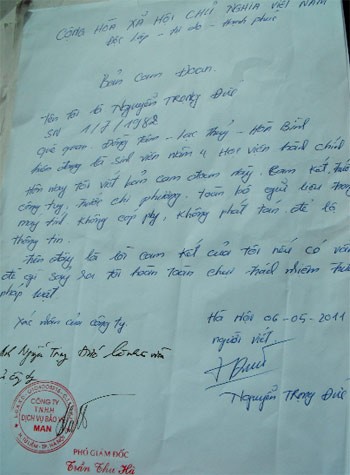 CỘNG HÒA XÃ HỘI CHỦ NGHĨA VIỆT NAM
Độc lập - Tự do - Hạnh phúc
Bản Cam Đoan.
Tên tôi là Nguyễn Trọng Đức
SN 1/7/1982
Quê quán. Đồng Tâm - Lạc Thuỷ - Hòa Bình
hiện đang là Sinh viên năm 4 Học viện hành chính
Hôm nay tôi viết bản cam đoan này. Cam kết trước
công ty. Trước chi phương. toàn bộ dữ liệu trong
máy tính không cop py, không phát tán, để lộ
thông tin.
Trên đây là lời cam kết của tôi nếu có vấn
đề gì say ra tôi hoàn toàn chịu trách nhiệm trước
pháp luật.
Hà Nội 06-05-2011
Xác nhận của công ty.
người viết.
Nguyễn Trọng Đức
là nhân viên
CÔNG TY
T.N.H.H
DỊCH VỤ BẢO VỆ
MAN
PHÓ GIÁM ĐỐC
Trần Thu Hà
Nguyễn Trọng Đức